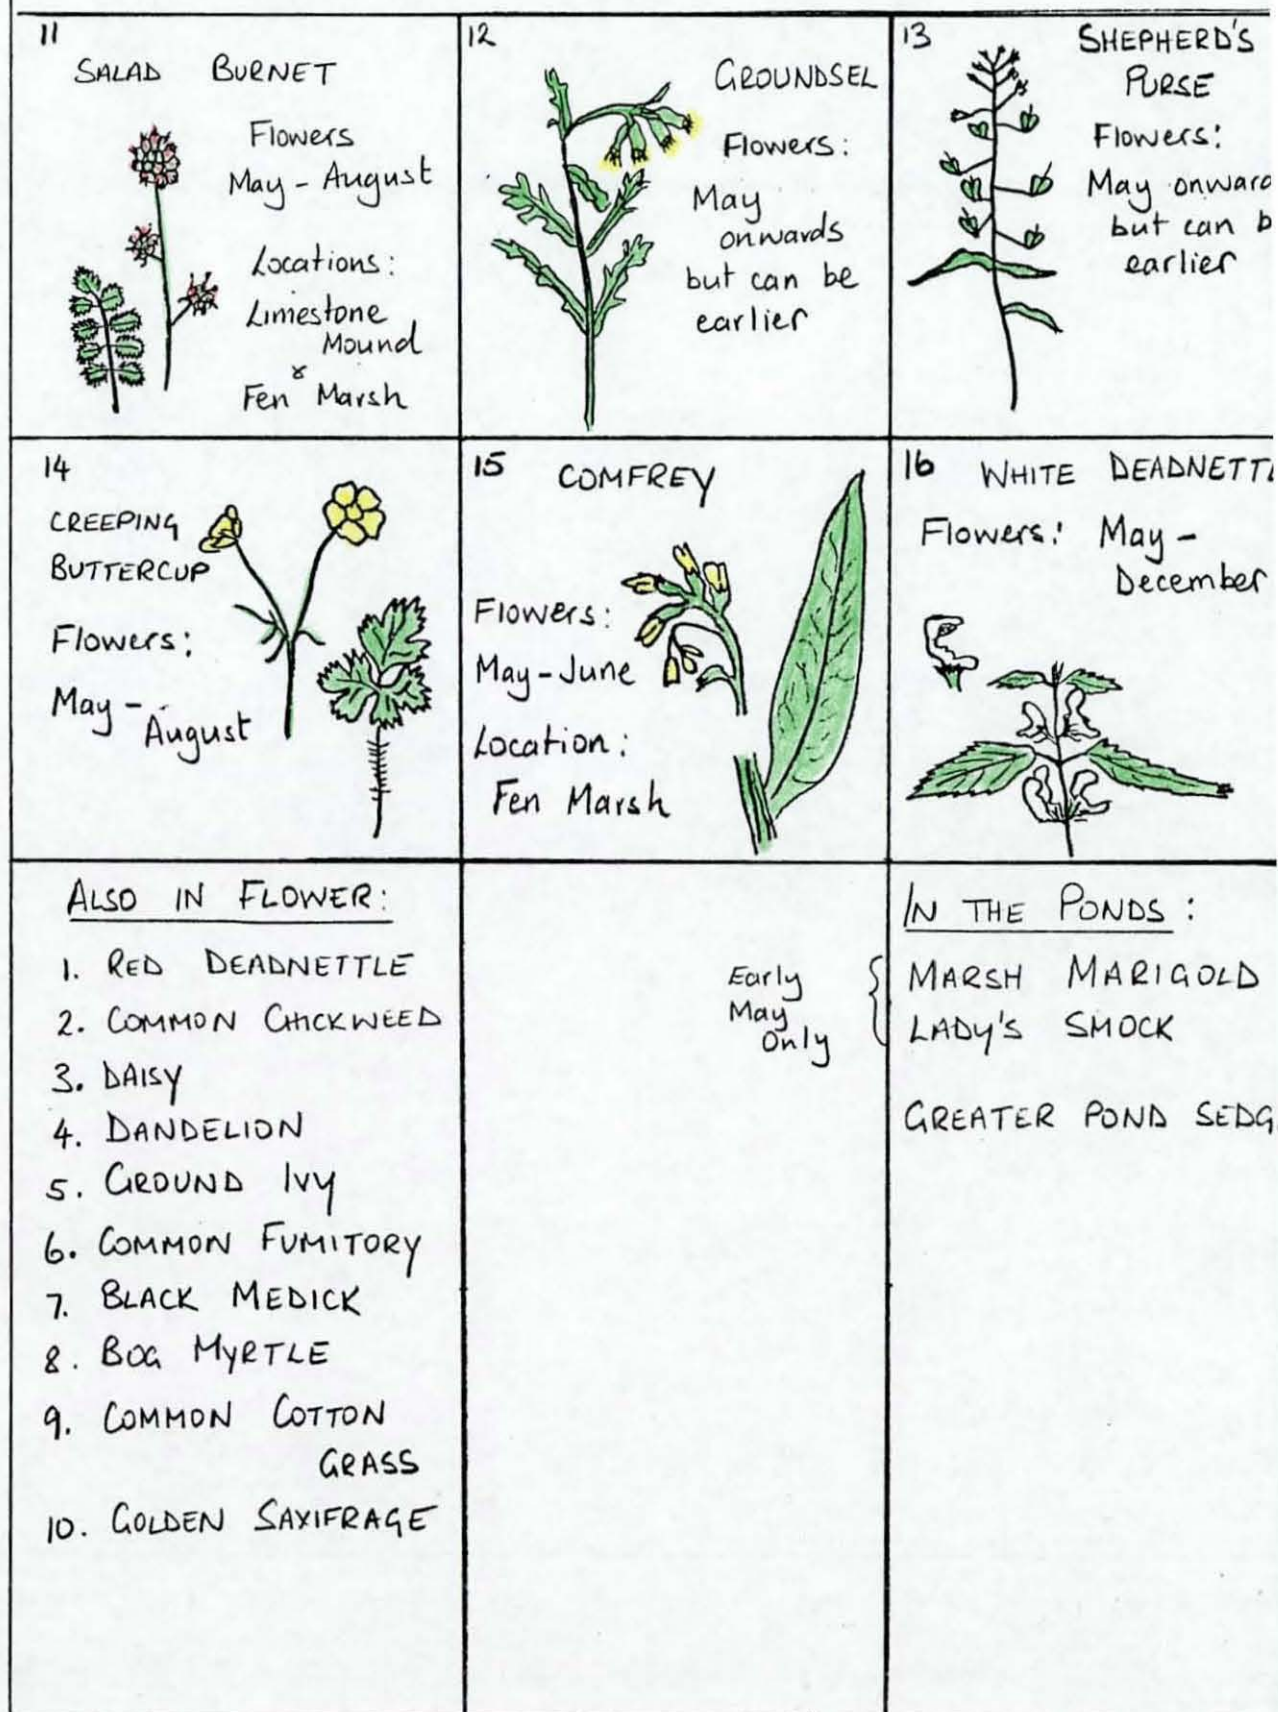 11
SALAD BURNET
Flowers
May - August
Locations:
Limestone
Mound
&
Fen Marsh
12
GROUNDSEL
Flowers:
May
onwards
but can be
earlier
13
SHEPHERD'S
PURSE
Flowers:
May onward
but can b
earlier
14
CREEPING
BUTTERCUP
Flowers:
May -
August
15
COMFREY
Flowers:
May - June
Location:
Fen Marsh
16
WHITE DEADNETTL
Flowers: May -
December
ALSO IN FLOWER:
1. RED DEADNETTLE
2. COMMON CHICKWEED
3. DAISY
4. DANDELION
5. GROUND IVY
6. COMMON FUMITORY
7. BLACK MEDICK
8. BOG MYRTLE
9. COMMON COTTON
GRASS
10. GOLDEN SAXIFRAGE
Early
May
Only
IN THE PONDS:
MARSH MARIGOLD
LADY'S SMOCK
GREATER POND SEDG